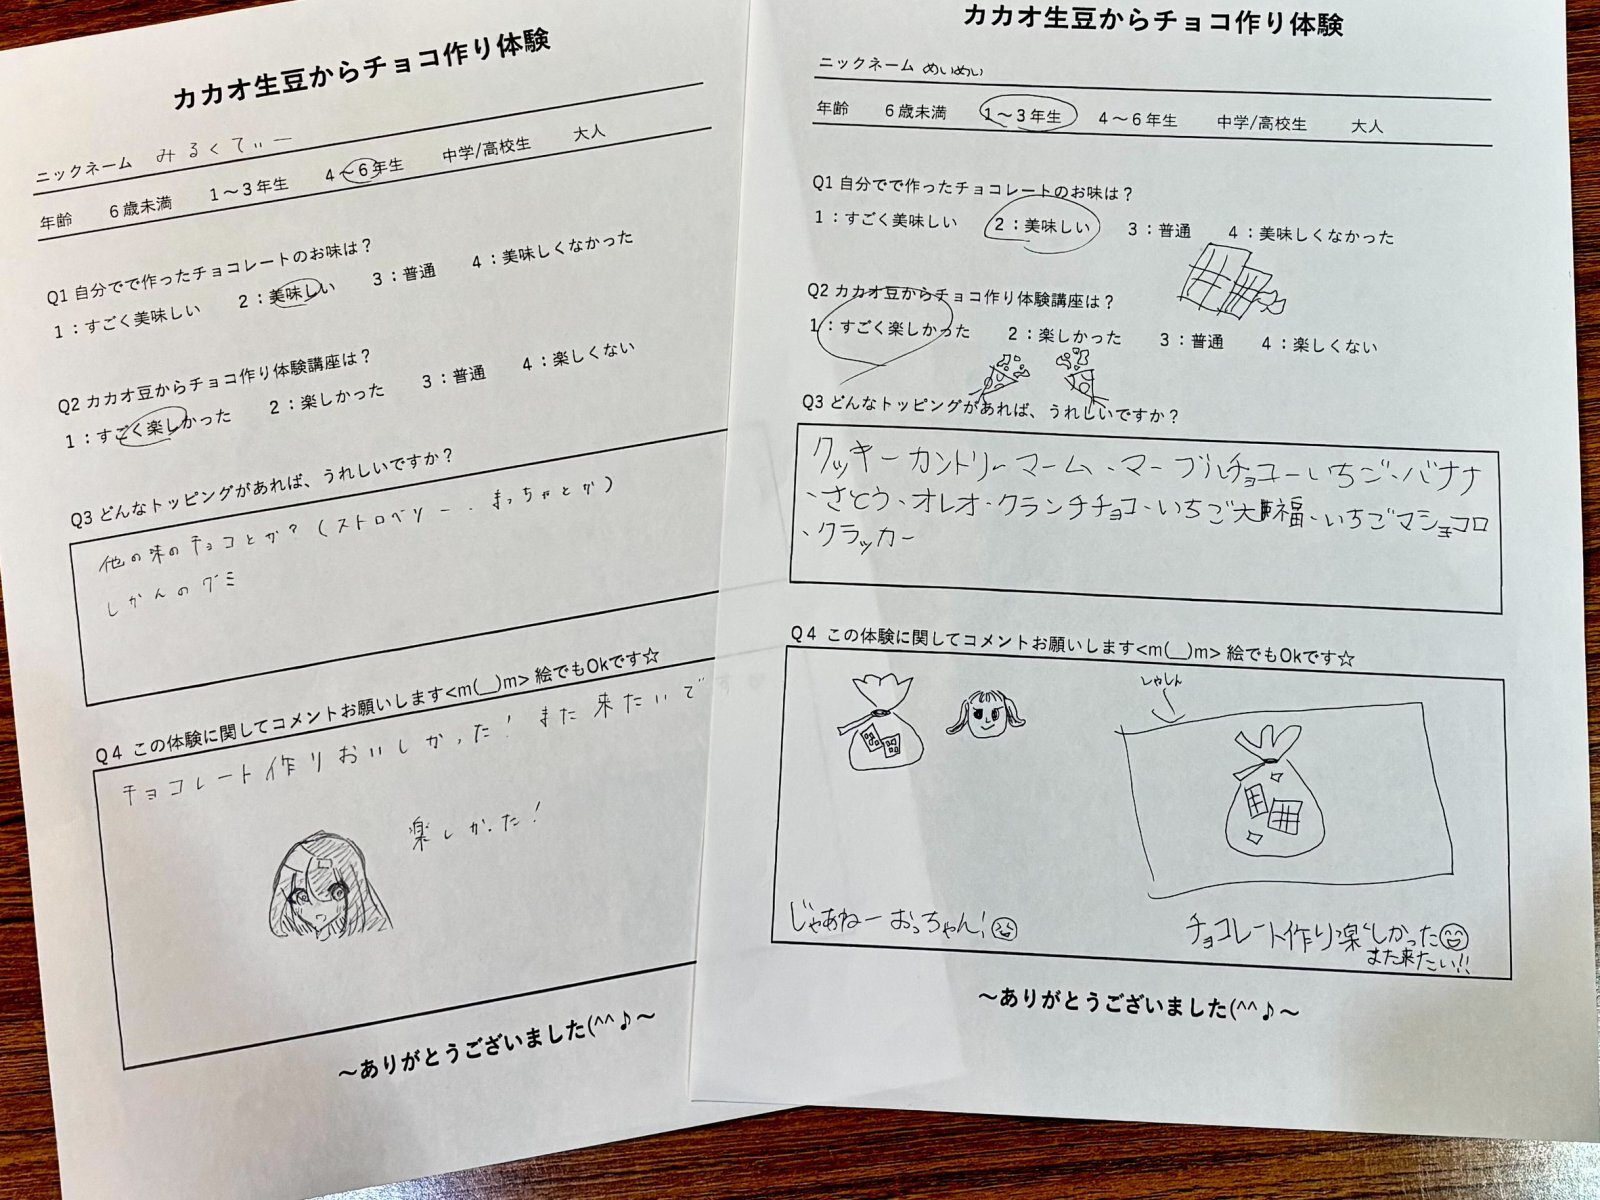 カカオ生豆からチョコ作り体験
ニックネーム みるくてぃー
年齢 6歳未満 1～3年生 4～6年生 中学/高校生 大人
Q1 自分でで作ったチョコレートのお味は？
1：すごく美味しい 2：美味しい 3：普通 4：美味しくなかった
Q2 カカオ豆からチョコ作り体験講座は？
1：すごく楽しかった 2：楽しかった 3：普通 4：楽しくない
Q3 どんなトッピングがあれば、うれしいですか？
他の味のチョコとか？(ストロベリー、まっちゃとか)
しかんのグミ
Q4 この体験に関してコメントお願いします<m(__)m> 絵でもOkです☆
チョコレート作りおいしかった！また来たいで
楽しかった！
～ありがとうございました(^^♪～
カカオ生豆からチョコ作り体験
ニックネーム めいめい
年齢 6歳未満 1～3年生 4～6年生 中学/高校生 大人
Q1 自分でで作ったチョコレートのお味は？
1：すごく美味しい 2：美味しい 3：普通 4：美味しくなかった
Q2 カカオ豆からチョコ作り体験講座は？
1：すごく楽しかった 2：楽しかった 3：普通 4：楽しくない
Q3 どんなトッピングがあれば、うれしいですか？
クッキーカントリーマーム、マーブルチョコーいちご、バナナ
、さとう、オレオ、クランチチョコ、いちご大福、いちごマショコロ
、クラッカー
Q4 この体験に関してコメントお願いします<m(__)m> 絵でもOkです☆
しゃしん
じゃあねーおっちゃん！
チョコレート作り楽しかった
また来たい!!
～ありがとうございました(^^♪～